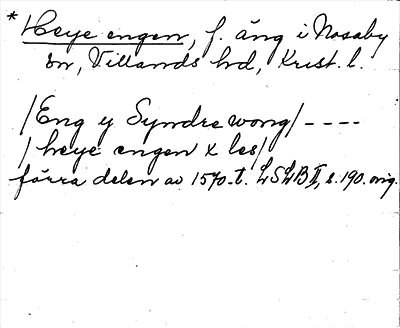 * Heye engen, f. äng i Nosaby
sn, Villands hd, Krist. l.
/Eng y Syndre wong/ - - - -
/heye engen x les/
förra delen av 1570-t. LSLB II, s. 190. orig.